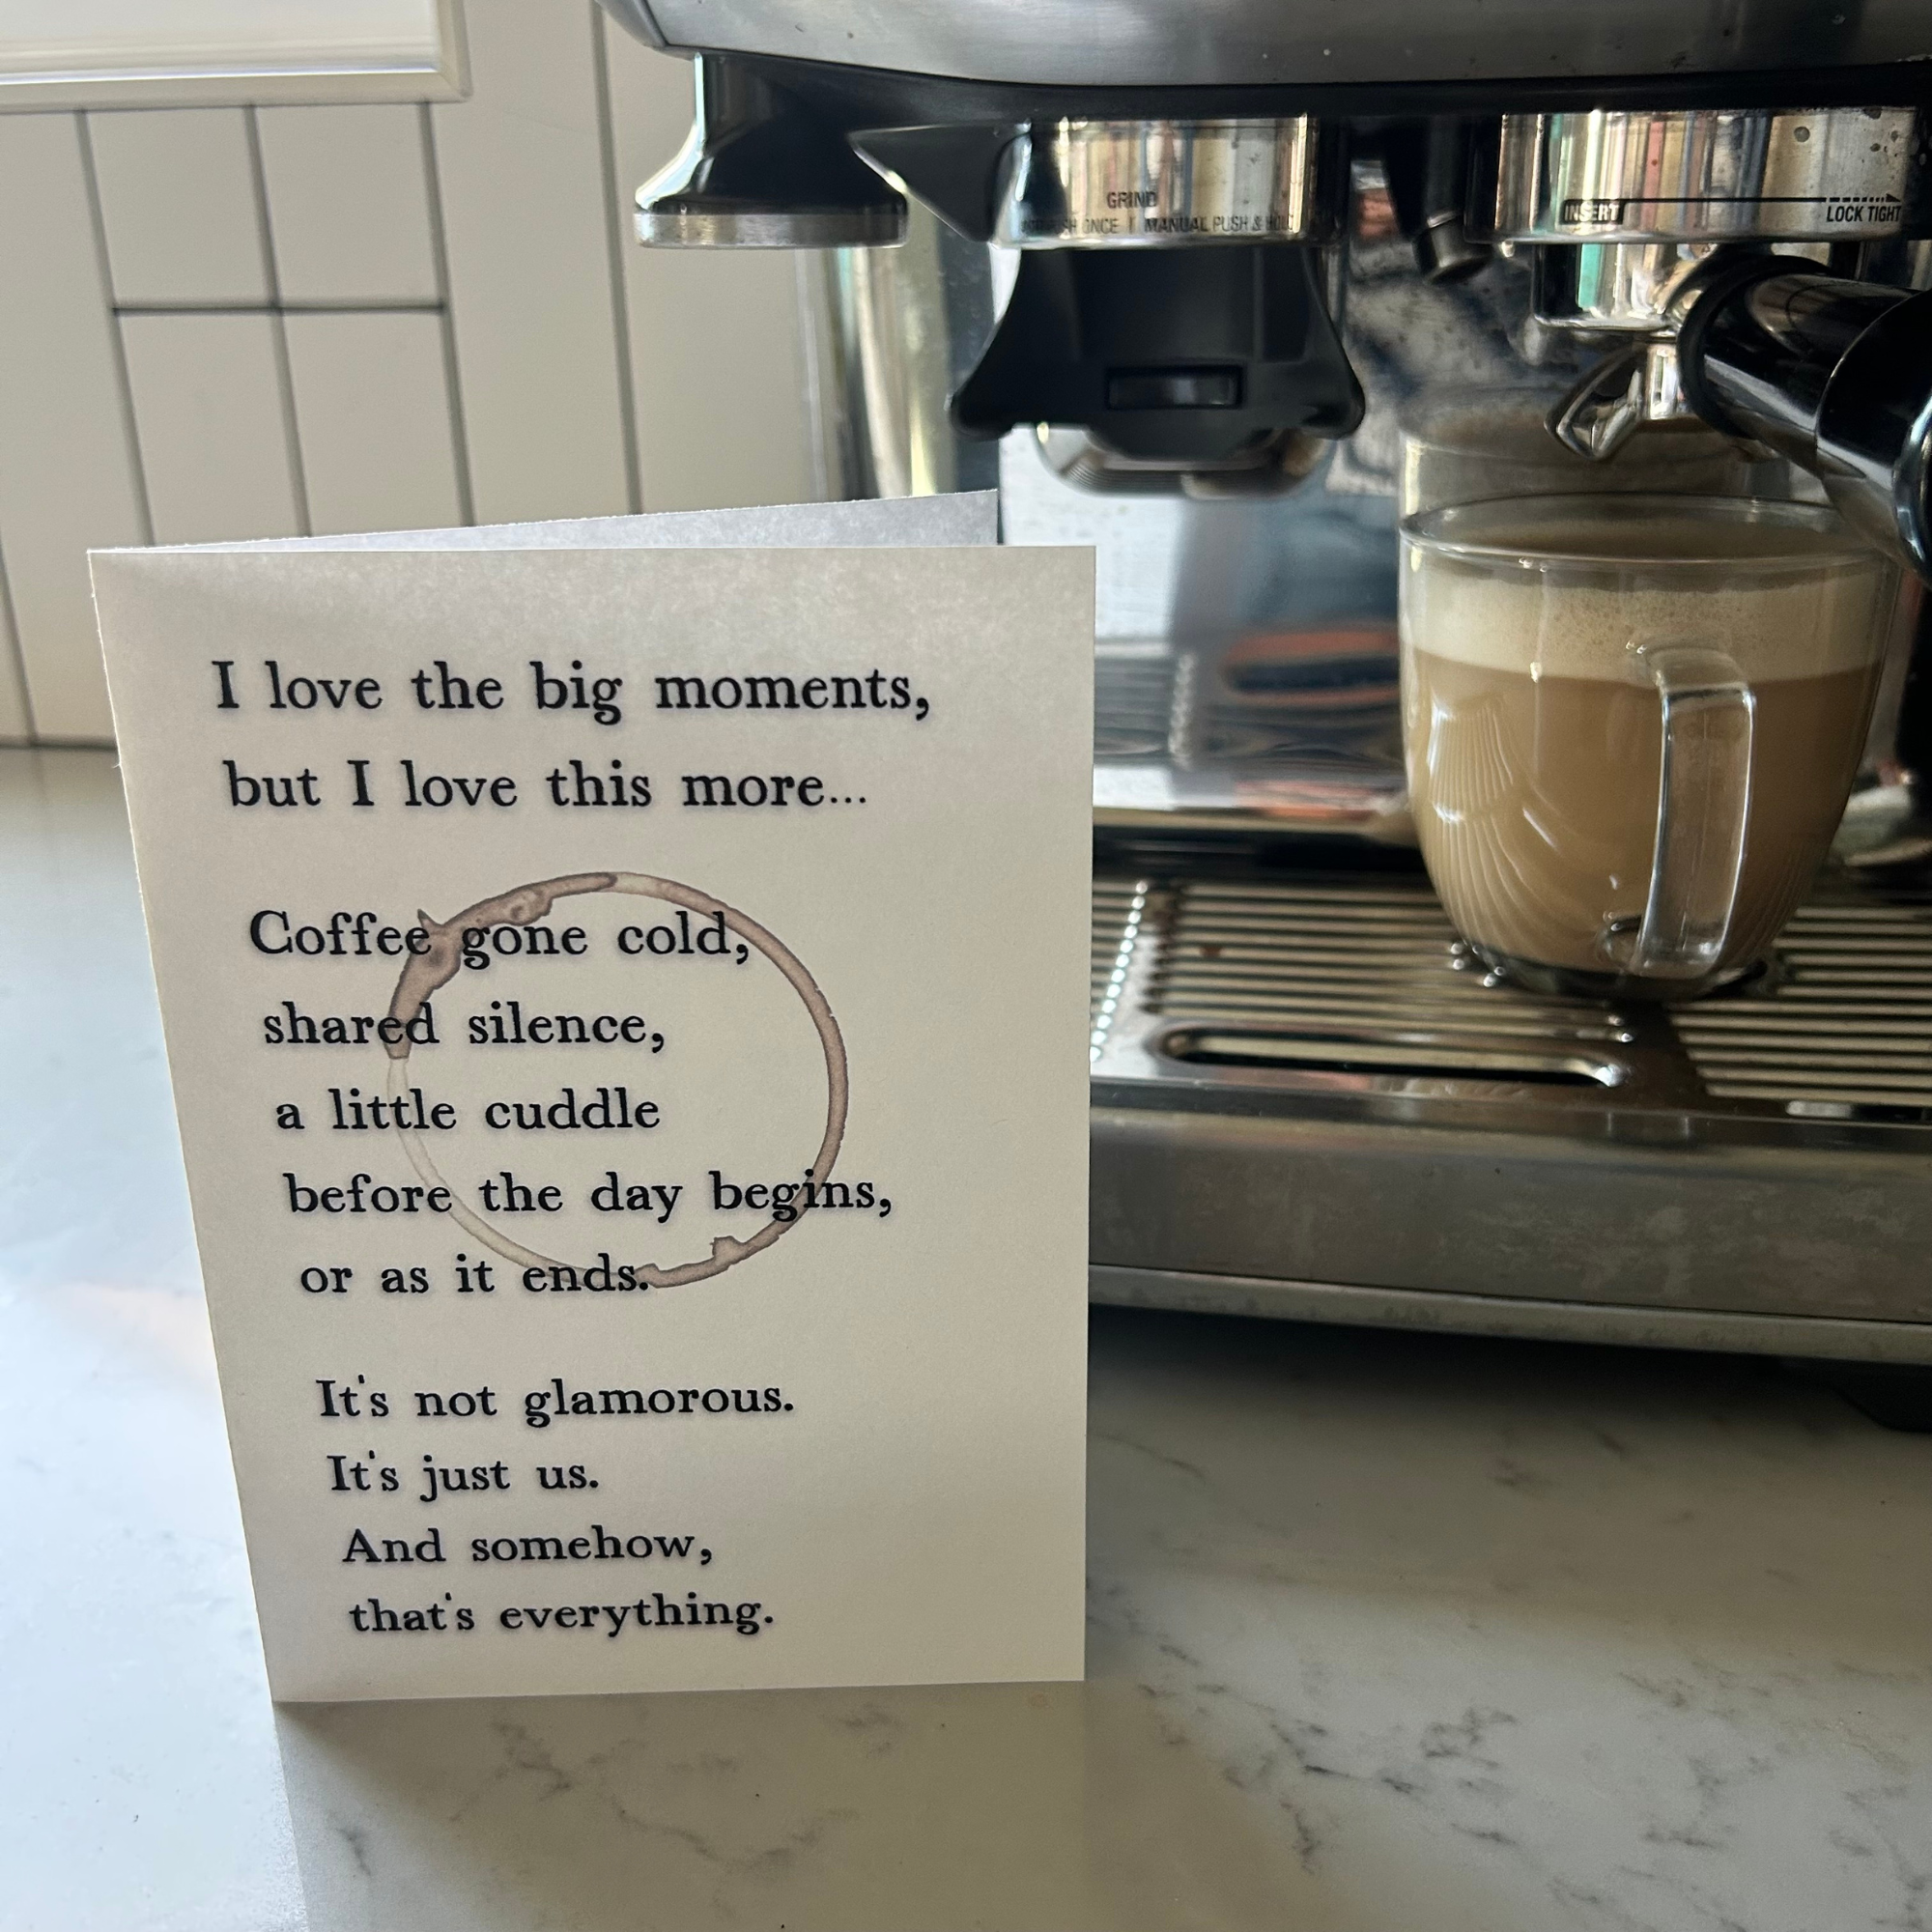 GRIND
ONCE | MANUAL PUSH & HOLD
INSERT
LOCK TIGHT
I love the big moments,
but I love this more...
Coffee gone cold,
shared silence,
a little cuddle
before the day begins,
or as it ends.
It's not glamorous.
It's just us.
And somehow,
that's everything.